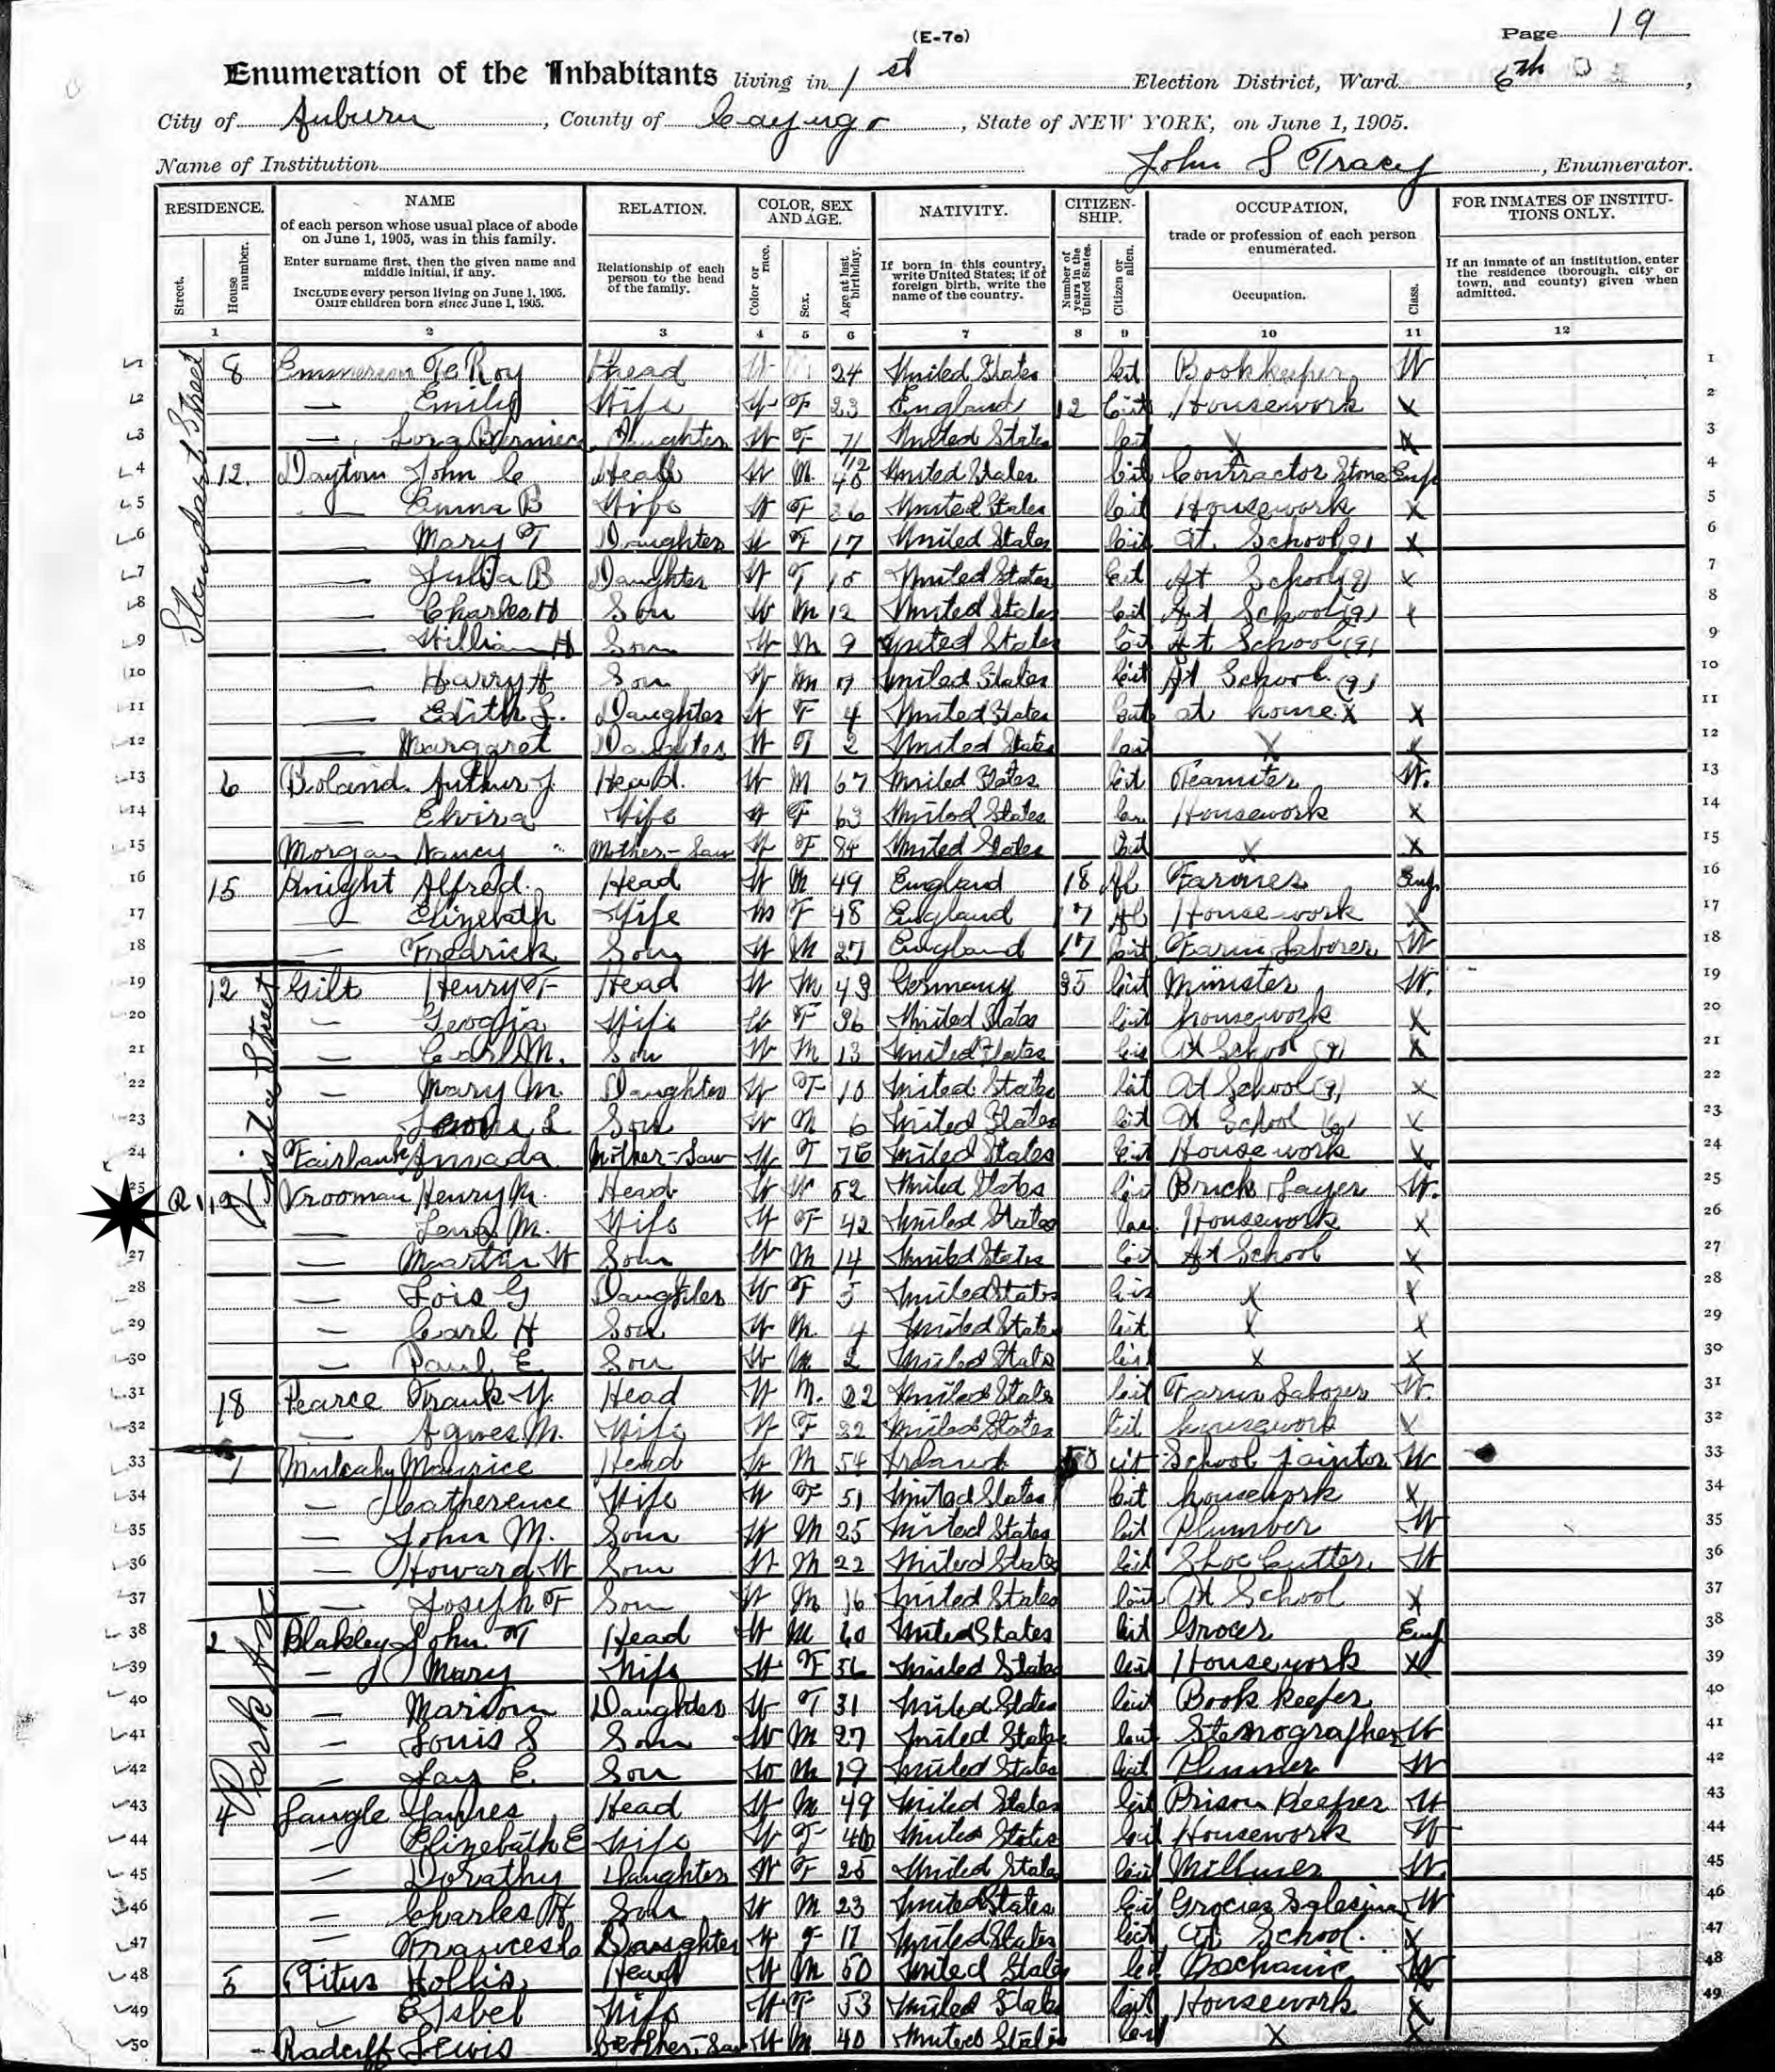 (E-70)
Page 19
Enumeration of the Inhabitants living in 1st Election District, Ward 6th
City of Auburn, County of Cayuga, State of NEW YORK, on June 1, 1905.
Name of Institution John S Tracy, Enumerator.
RESIDENCE. NAME RELATION. COLOR, SEX AND AGE. NATIVITY. CITIZENSHIP. OCCUPATION, FOR INMATES OF INSTITUTIONS ONLY.
of each person whose usual place of abode on June 1, 1905, was in this family.
Enter surname first, then the given name and middle initial, if any.
INCLUDE every person living on June 1, 1905. OMIT children born since June 1, 1905.
Relationship of each person to the head of the family.
If born in this country, write United States; if of foreign birth, write the name of the country.
trade or profession of each person enumerated.
If an inmate of an institution, enter the residence (borough, city or town, and county) given when admitted.
Street. House number. Color or race. Sex. Age at last birthday. Number of years in the United States. Citizen or alien. Occupation. Class.
1 2 3 4 5 6 7 8 9 10 11 12
Standart Street
1 8 Head 24 United States Cit Bookkeeper W 1
2 — Emily Wife W F 23 England 12 Cit Housework X 2
3 — Daughter W F United States Cit X X 3
4 12 John C Head W M 40 United States Cit Contractor Stone Emp 4
5 — Emma B Wife W F 36 United States Cit Housework X 5
6 — Mary T Daughter W F 17 United States Cit At School (9) X 6
7 — Julia B Daughter W F 15 United States Cit At School (9) X 7
8 — Charles H Son W M 12 United States Cit At School (9) X 8
9 — William H Son W M 9 United States Cit At School (9) 9
10 — Harry H Son W M 7 United States Cit At School (9) 10
11 — Edith L. Daughter W F 4 United States Cit at home X X 11
12 — Margaret Daughter W F 2 United States Cit X X 12
13 6 Boland Arthur J. Head W M 67 United States Cit Teamster W. 13
14 — Elvira Wife W F 63 United States Cit Housework X 14
15 Morgan Nancy Mother-Law W F 84 United States Cit X X 15
16 15 Knight Alfred Head W M 49 England 18 Al Farmer Emp 16
17 — Elizebath Wife W F 48 England 17 Al Housework X 17
18 — Fredrick Son W M 27 England 17 Cit Farm Laborer W 18
Vista Street
19 12 Gilt Henry F Head W M 43 Germany 35 Cit Minister W. 19
20 — Georgia Wife W F 36 United States Cit housework X 20
21 — Carl M. Son W M 13 United States Cit At School (9) X 21
22 — Mary M. Daughter W F 10 United States Cit At School (9) X 22
23 — Son W M 6 United States Cit At School X 23
24 Fairbank Mother-Law W F 76 United States Cit Housework X 24
25 R 112 Vrooman Henry M. Head W M 52 United States Cit Brick Layer W. 25
26 — Lena M. Wife W F 42 United States Cit Housework X 26
27 — Martin W Son W M 14 United States Cit At School X 27
28 — Lois G Daughter W F 5 United States Cit X X 28
29 — Carl H Son W M. 4 United States Cit X X 29
30 — Paul E. Son W M 2 United States Cit X X 30
31 18 Pearce Frank Y. Head W M. 22 United States Cit Farm Laborer W. 31
32 — Agnes M. Wife W F 22 United States Cit housework X 32
Park Ave
33 1 Mulcahy Maurice Head W M 54 Ireland 50 cit School Jaintor W 33
34 — Catherence Wife W F 51 United States Cit housework X 34
35 — John M. Son W M 25 United States Cit Plumber W 35
36 — Howard W Son W M 22 United States Cit Shoe Cutter W 36
37 — Joseph F Son W M 16 United States Cit At School X 37
38 2 Blakley John T Head W M 60 United States Cit Grocer Emp 38
39 — Mary Wife W F 56 United States Cit Housework X 39
40 — Marion Daughter W F 31 United States Cit Book keeper 40
41 — Louis S Son W M 27 United States Cit Stenographer W 41
42 — Jay E. Son W M 19 United States Cit W 42
43 4 James Head W M 49 United States Cit Prison Keeper W 43
44 — Elizebath E Wife W F 46 United States Cit Housework W 44
45 — Dorathy Daughter W F 25 United States Cit Milliner W. 45
46 — Charles H Son W M 23 United States Cit W 46
47 — Frances C Daughter W F 17 United States Cit At School. X 47
48 5 Titus Hollis Head W M 50 United States Cit W 48
49 — Wife W F 53 United States Cit Housework X 49
50 — Radcliff Lewis W M 40 United States Cit X X